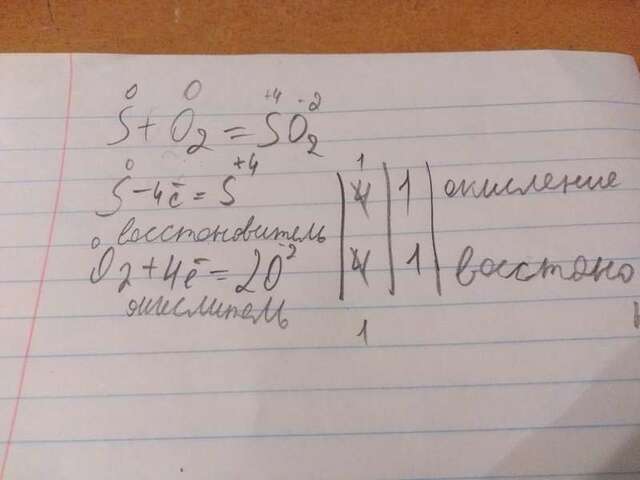 0 0 +4 -2
S + O2 = SO2
0 +4 1
S - 4ē = S | 4 | 1 | окисление
восстановитель
0 -2
O2 + 4ē = 2O | 4 | 1 | восстано
окислитель
1